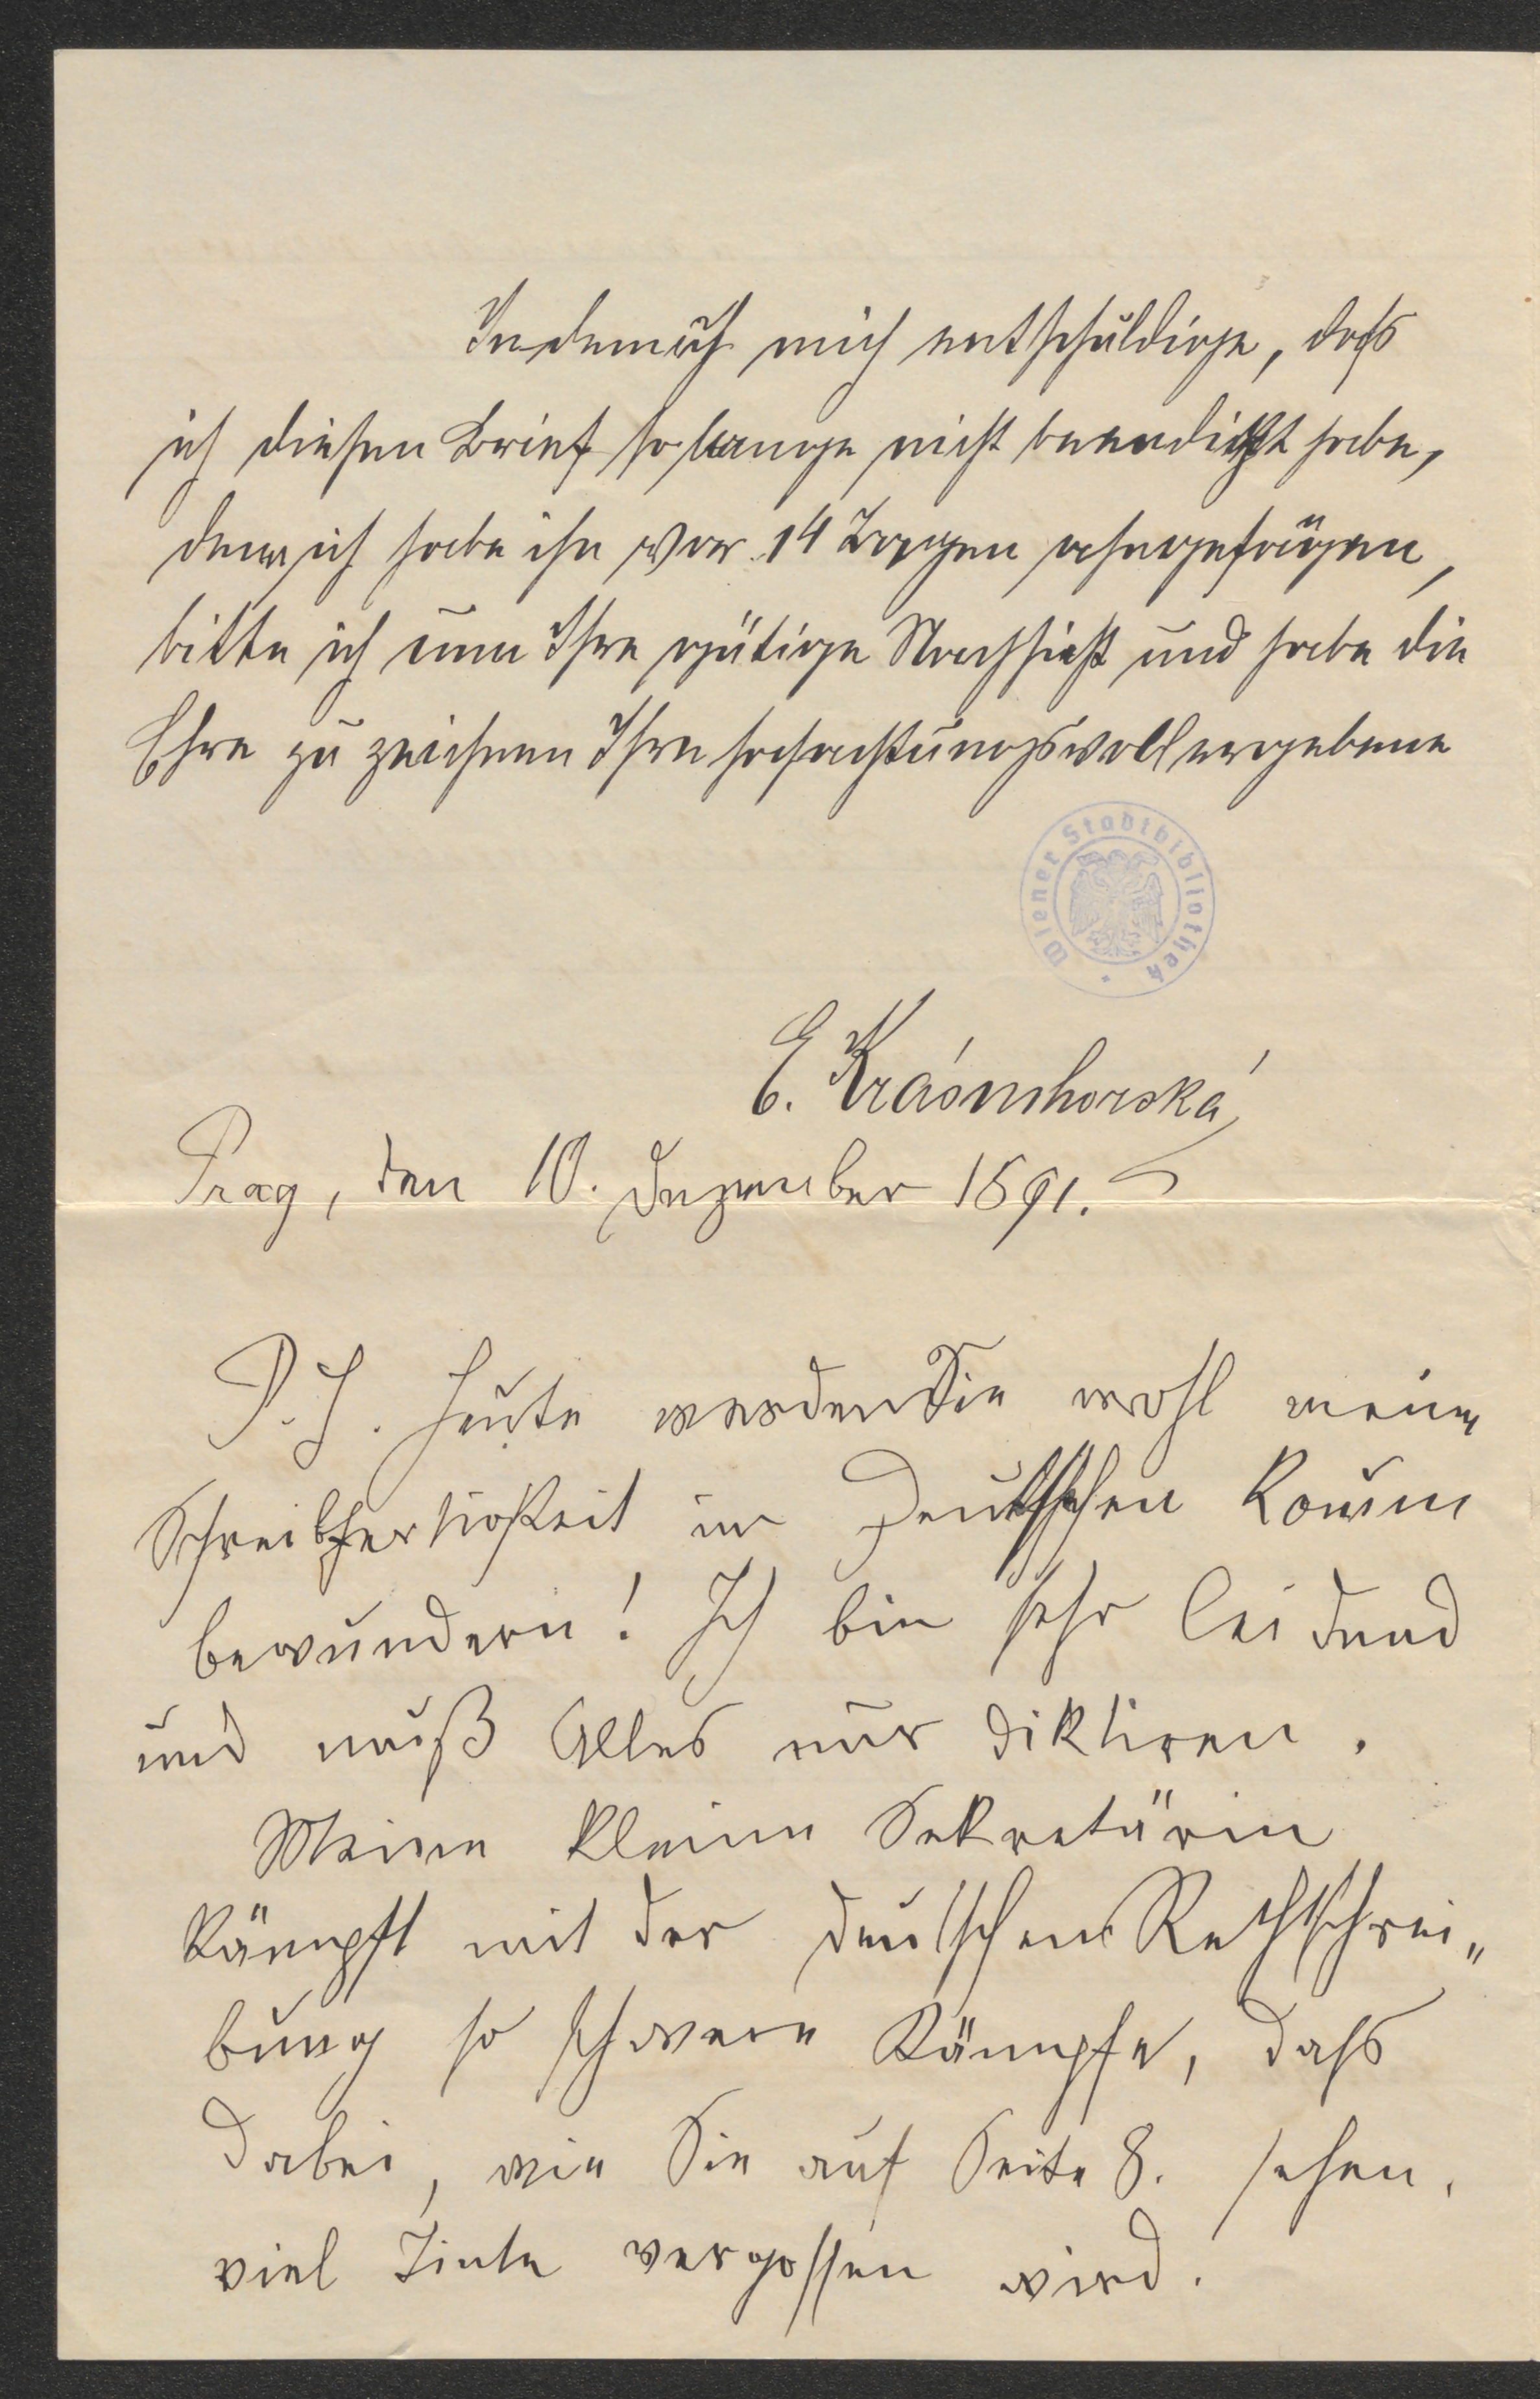 Indem ich mich entschuldige, dass
ich diesen Brief so lange nicht beendigt habe,
denn ich habe ihn vor 14 Tagen angefangen,
bitte ich um Ihre gütige Nachsicht und habe die
Ehre zu zeichnen Ihre hochachtungsvoll ergebene
Wiener Stadtbibliothek
E. Krásnohorská
Prag, den 10. Dezember 1891.
P. S. Heute werden Sie wohl meine
Schreibfertigkeit im Deutschen kaum
bewundern! Ich bin sehr leidend
und muß Alles nur diktiren.
Meine kleine Sekretärin
kämpft mit der deutschen Rechtschrei„
bung so schwere Kämpfe, dass
dabei, wie Sie auf Seite 8. sehen,
viel Tinte vergossen wird.